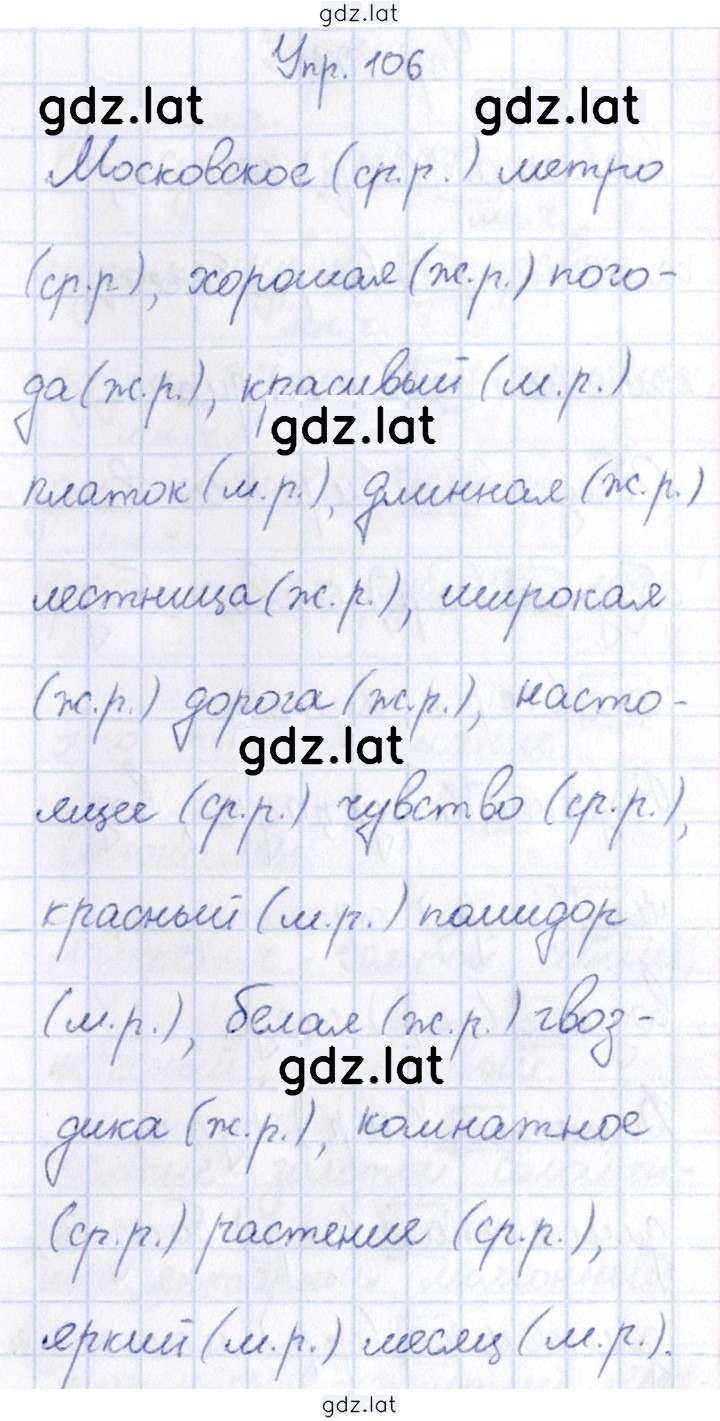 gdz.lat
Упр. 106
gdz.lat gdz.lat
Московское (ср.р.) метро
(ср.р), хорошая (ж.р.) пого-
да (ж.р.), красивый (м.р.)
gdz.lat
платок (м.р.), длинная (ж.р.)
лестница (ж.р.), широкая
(ж.р.) дорога (ж.р.), насто-
gdz.lat
ящее (ср.р.) чувство (ср.р.),
красный (м.р.) помидор
(м.р.), белая (ж.р.) гвоз-
gdz.lat
дика (ж.р.), комнатное
(ср.р.) растение (ср.р.),
яркий (м.р.) месяц (м.р.).
gdz.lat